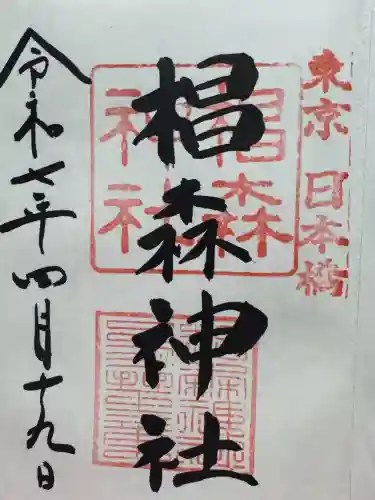 東京 日本橋
椙森神社
椙森神社
令和七年四月十九日